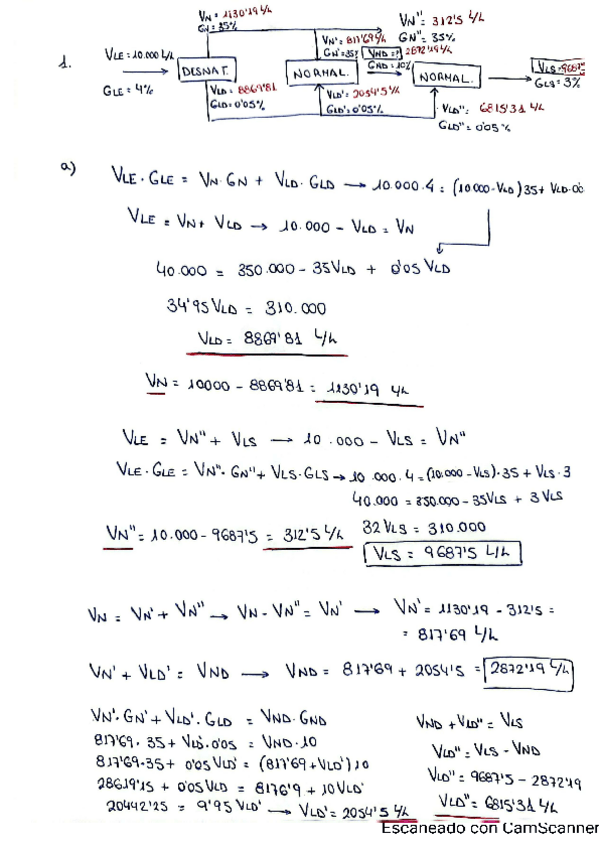 1.
VLE = 10.000 L/h
GLE = 4%
DESNAT.
VN = 1130'19 L/h
GN = 35%
VLD = 8869'81
GLD = 0'05%
VN' = 817'69 L/h
GN' = 35%
NORMAL.
VLD' = 2054'5 L/h
GLD' = 0'05%
VND = ? 2872'19 L/h
GND = 10%
VN'' = 312'5 L/h
GN'' = 35%
NORMAL.
VLD'' = 6815'31 L/h
GLD'' = 0'05%
VLS = 9687'
GLS = 3%
a)
VLE · GLE = VN · GN + VLD · GLD → 10.000·4 = (10000-VLD)35 + VLD·0'0
VLE = VN + VLD → 10.000 - VLD = VN
40.000 = 350.000 - 35VLD + 0'05 VLD
34'95 VLD = 310.000
VLD = 8869'81 L/h
VN = 10000 - 8869'81 = 1130'19 L/h
VLE = VN'' + VLS → 10.000 - VLS = VN''
VLE · GLE = VN'' · GN'' + VLS · GLS → 10.000·4 = (10.000-VLS)·35 + VLS·3
40.000 = 350.000 - 35VLS + 3VLS
VN'' = 10.000 - 9687'5 = 312'5 L/h 32 VLS = 310.000
VLS = 9687'5 L/h
VN = VN' + VN'' → VN - VN'' = VN' → VN' = 1130'19 - 312'5 =
= 817'69 L/h
VN' + VLD' = VND → VND = 817'69 + 2054'5 = 2872'19 L/h
VN' · GN' + VLD' · GLD = VND · GND
817'69 · 35 + VLD' · 0'05 = VND · 10
817'69 · 35 + 0'05 VLD' = (817'69 + VLD')10
28619'15 + 0'05 VLD = 8176'9 + 10 VLD'
20442'25 = 9'95 VLD' → VLD' = 2054'5 L/h
VND + VLD'' = VLS
VLD'' = VLS - VND
VLD'' = 9687'5 - 2872'19
VLD'' = 6815'31 L/h
Escaneado con CamScanner